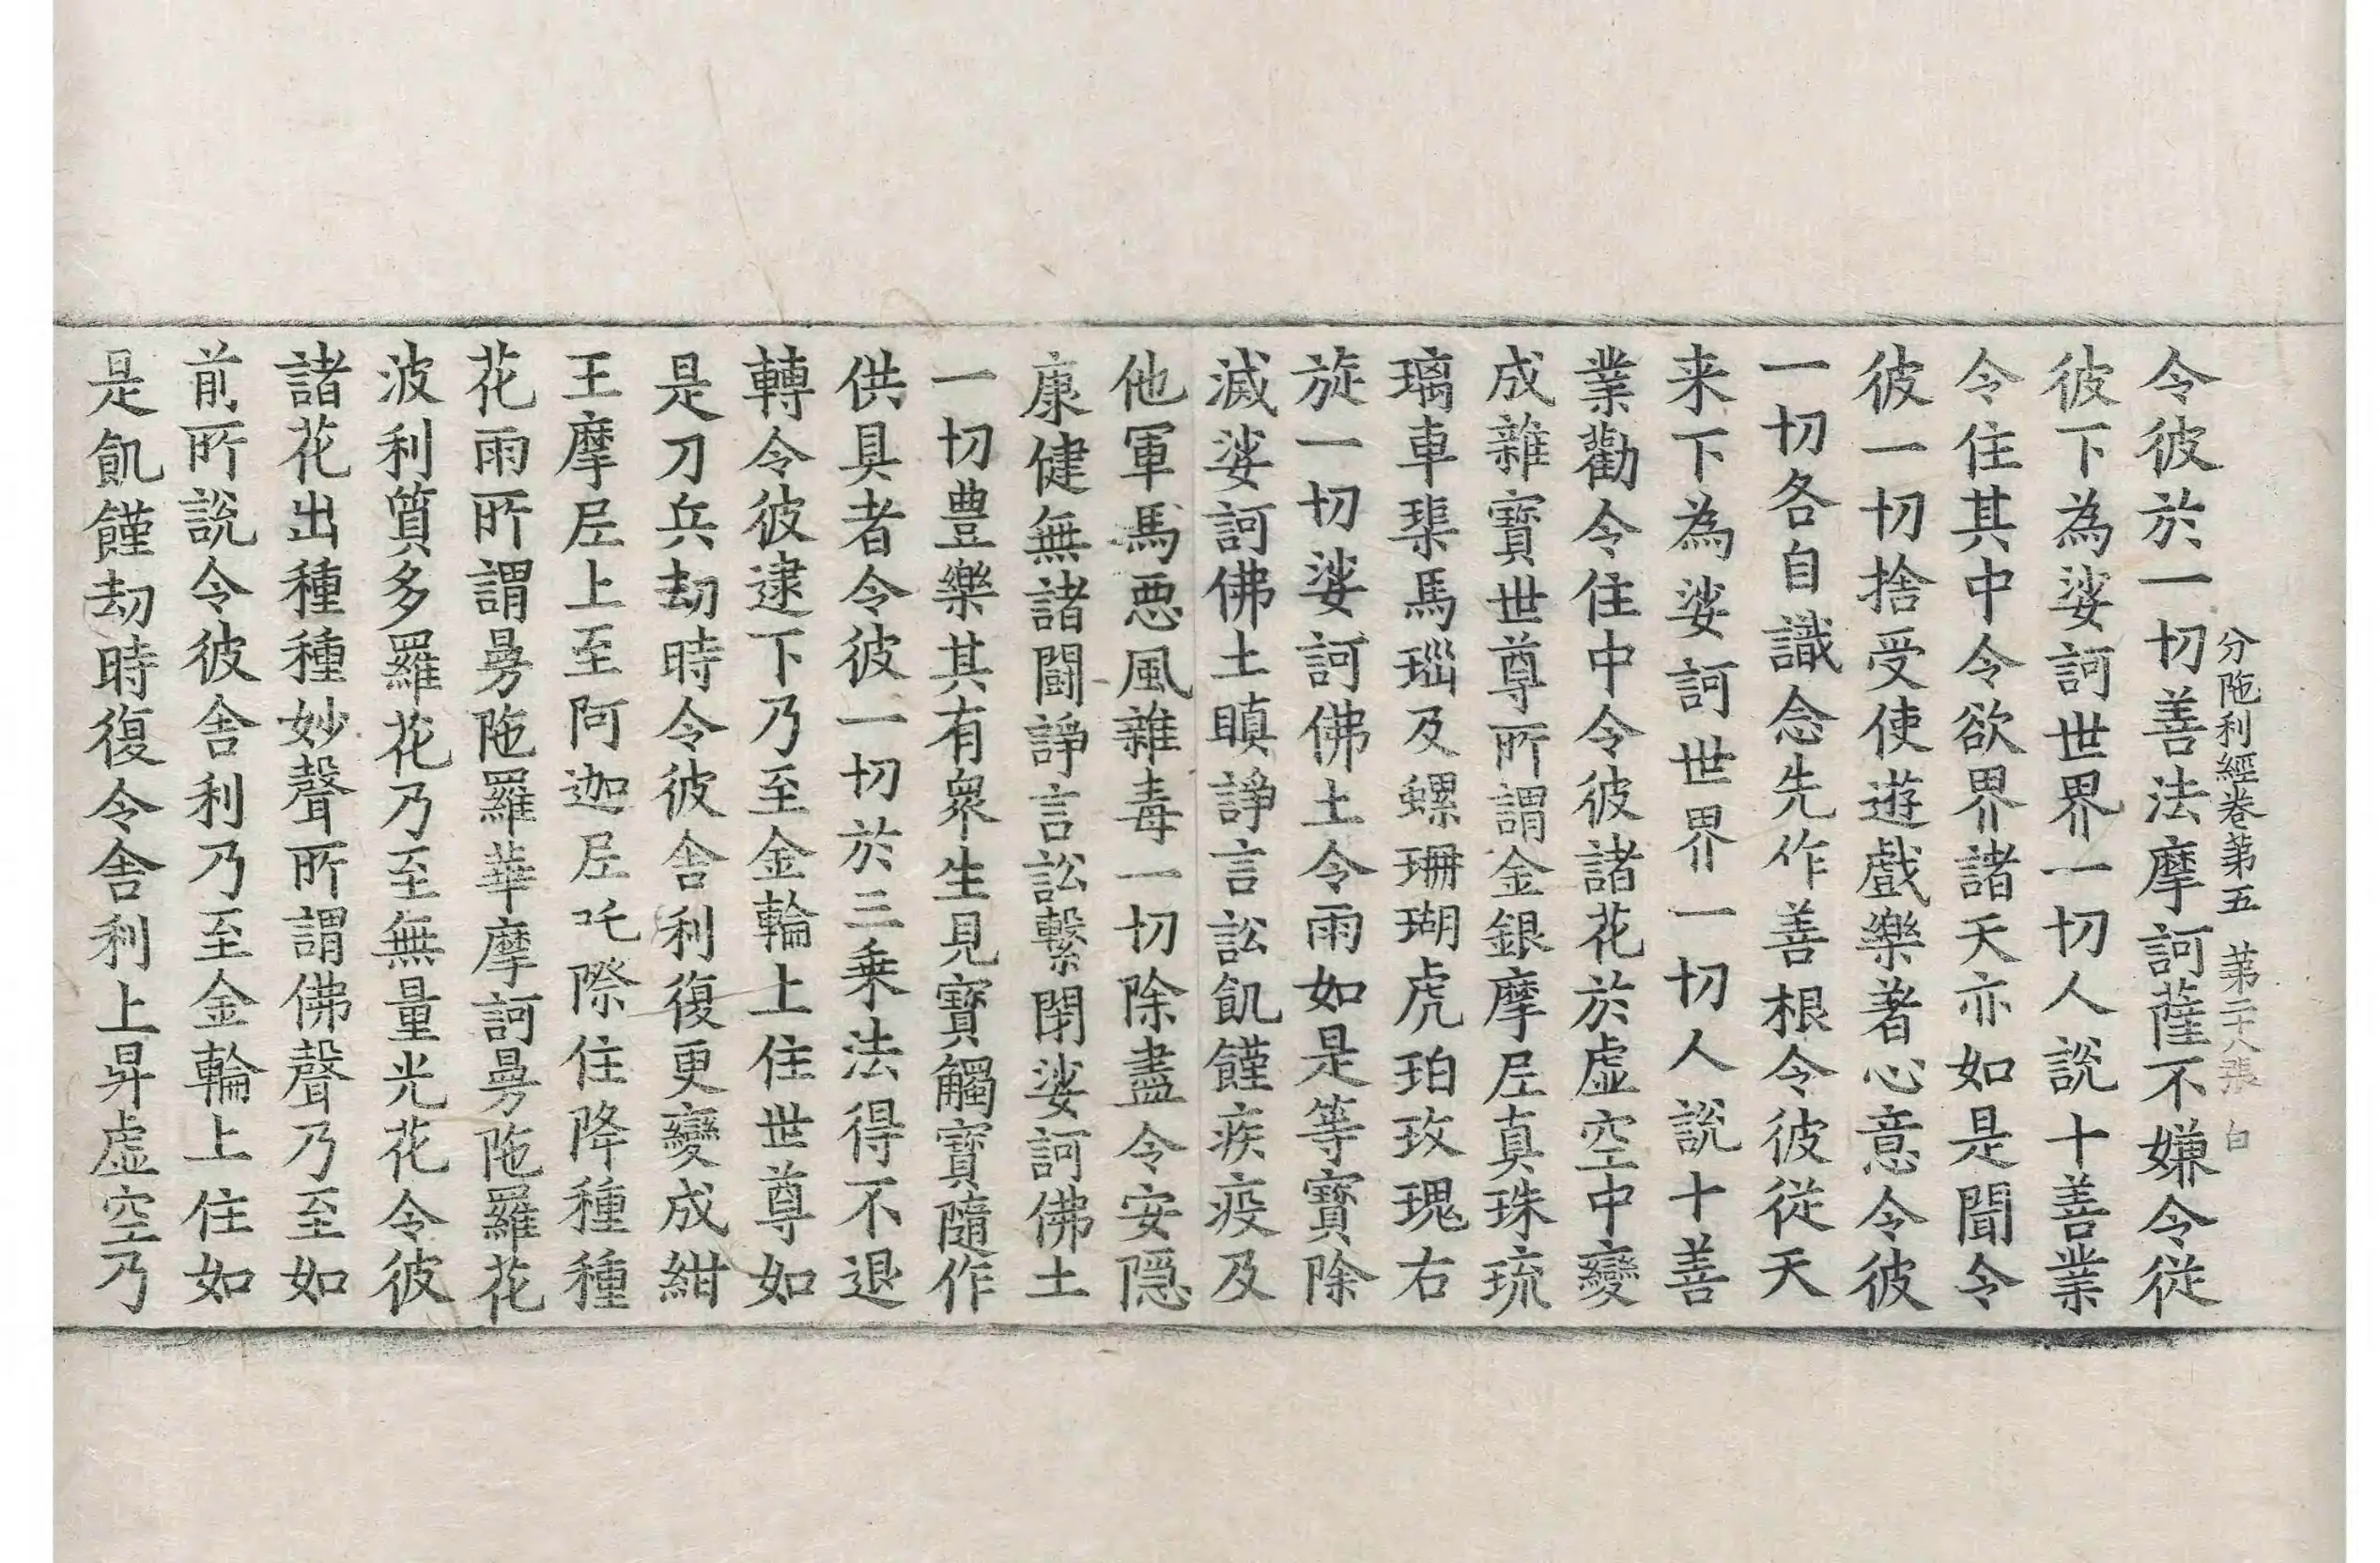 分陁利經卷第五 第二十八張 白
令彼於一切善法摩訶薩不嫌令從
彼下為娑訶世界一切人說十善業
令住其中令欲界諸天亦如是聞令
彼一切捨受使遊戲樂著心意令彼
一切各自識念先作善根令彼從天
来下為娑訶世界一切人說十善
業勸令住中令彼諸花於虛空中變
成雜寶世尊所謂金銀摩𡰱真珠琉
璃車𤦲馬瑙及螺珊瑚虎珀玫瑰右
旋一切娑訶佛土令雨如是等寶除
滅娑訶佛土瞋諍言訟飢饉疾疫及
他軍馬惡風雜毒一切除盡令安隱
康健無諸鬪諍言訟繫閉娑訶佛土
一切豊樂其有衆生見寶觸寶隨作
供具者令彼一切於三乗法得不退
轉令彼逮下乃至金輪上住世尊如
是刀兵劫時令彼舍利復更變成紺
王摩𡰱上至阿迦𡰱吒際住降種種
花雨所謂曼陁羅華摩訶曼陁羅花
波利質多羅花乃至無量光花令彼
諸花出種種妙聲所謂佛聲乃至如
前所說令彼舍利乃至金輪上住如
是飢饉劫時復令舍利上昇虛空乃